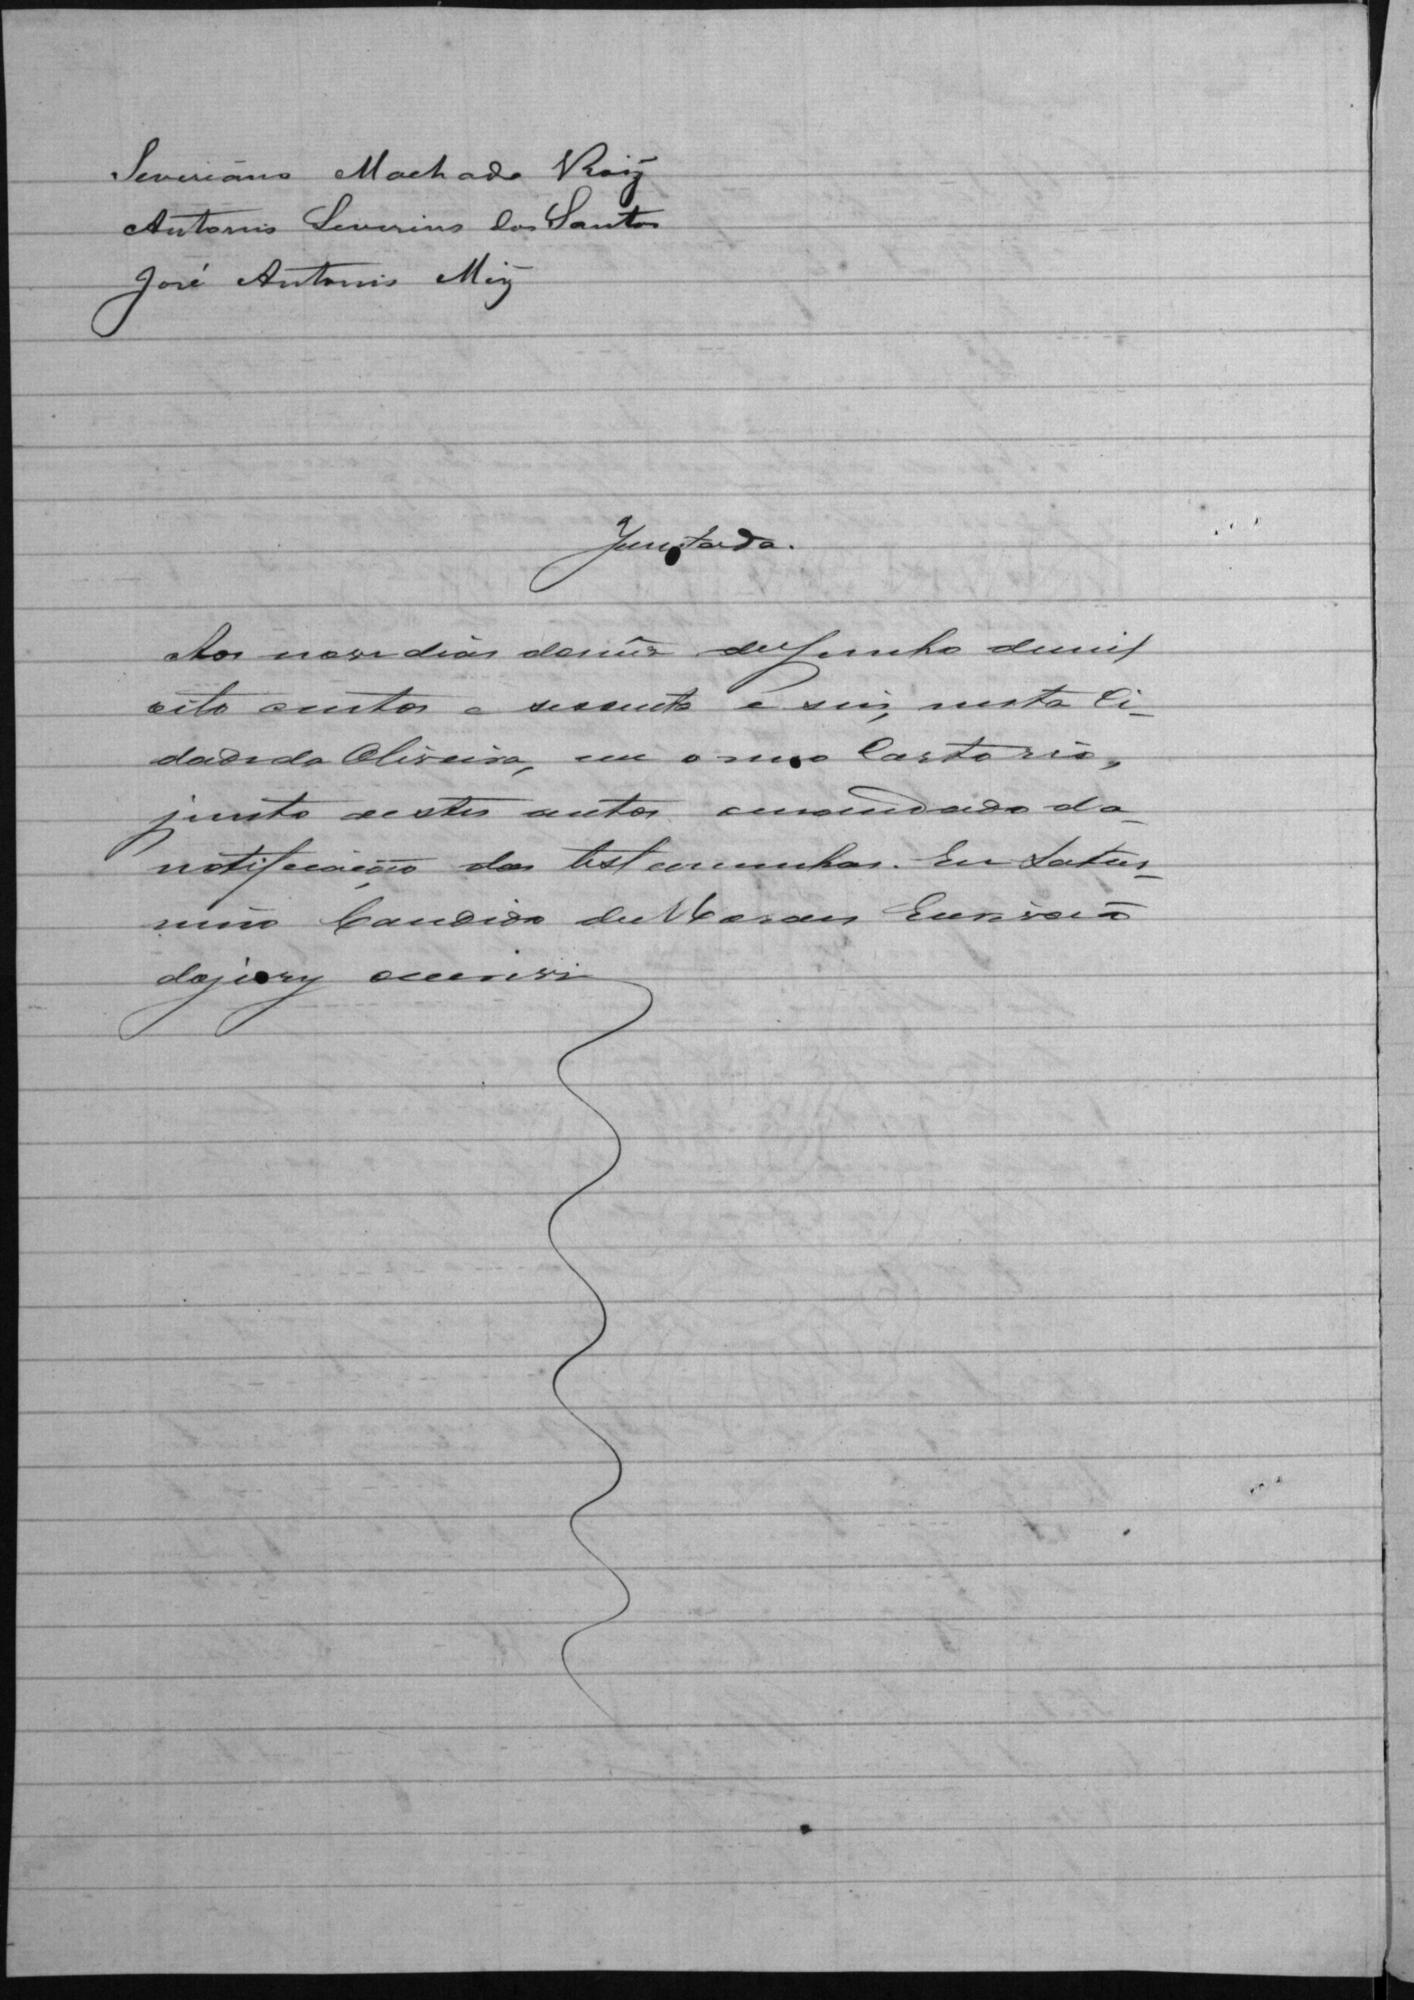 Severiano Machado Roiz
Antonio Severino dos Santos
José Antonio Miz
Juntada.
Aos nove dias domêz deJunho demil
oito centos e sessenta e seis, nesta Ci-
dadeda Oliveira, em o meo Cartorio,
junto aestes autos omandado da
notificação das testemunhas. Eu Satur-
nino Candido de Escrivão
dojury oescrivi